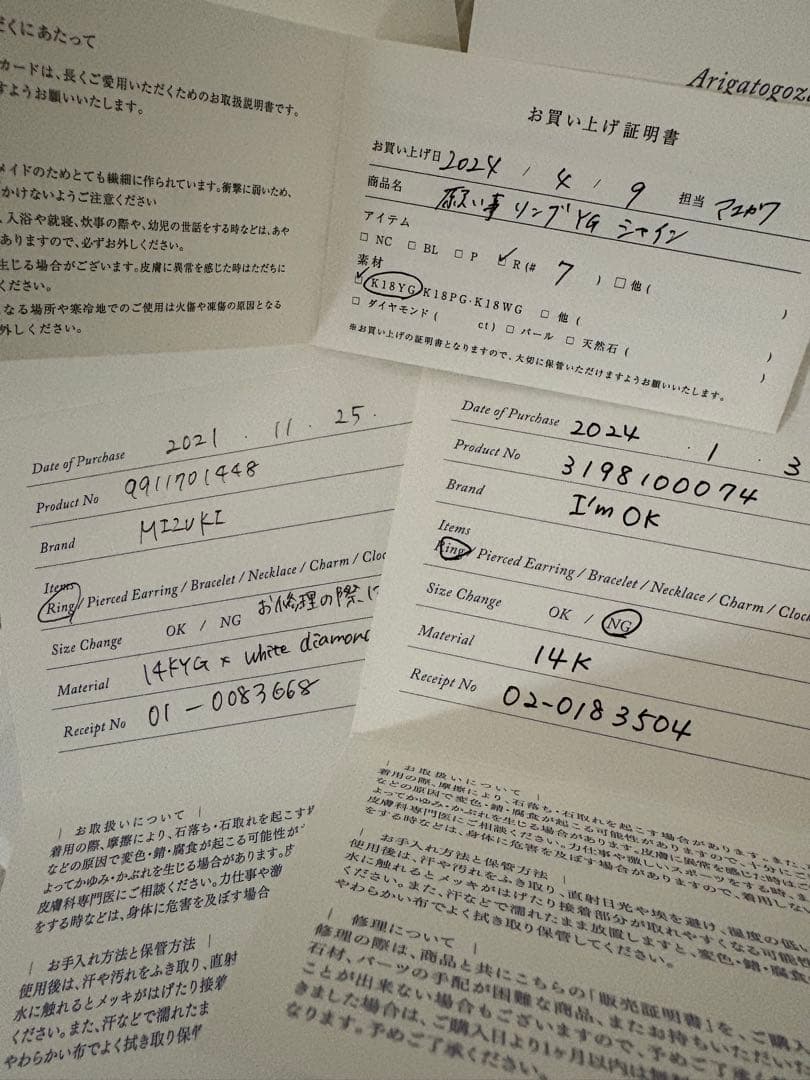 だくにあたって
カードは、長くご愛用いただくためのお取扱説明書です。
すようお願いいたします。
メイドのためとても繊細に作られています。衝撃に弱いため、
かけないようご注意ください
、入浴や就寝、炊事の際や、幼児の世話をする時などは、あや
ありますので、必ずお外しください。
生じる場合がございます。皮膚に異常を感じた時はただちに
ください。
なる場所や寒冷地でのご使用は火傷や凍傷の原因となる
外しください。
Arigatogoza
お買い上げ証明書
お買い上げ日 2024 / 4 / 9 担当 マエカワ
商品名 願い事 リング YG シャイン
アイテム
□ NC □ BL □ P ☑ R (# 7 ) □ 他 ( )
素材
☑ K18YG・K18PG・K18WG □ 他 ( )
□ ダイヤモンド ( ct) □ パール □ 天然石 ( )
※お買い上げの証明書となりますので、大切に保管いただけますようお願いいたします。
Date of Purchase 2021 . 11 . 25 .
Product No 9911701448
Brand MIZUKI
Items
Ring / Pierced Earring / Bracelet / Necklace / Charm / Cloc
Size Change OK / NG お修理の際、に
Material 14KYG × white diamond
Receipt No 01-0083668
| お取扱いについて |
着用の際、摩擦により、石落ち・石取れを起こす
などの原因で変色・錆・腐食が起こる可能性が
よってかゆみ・かぶれを生じる場合があります。
皮膚科専門医にご相談ください。力仕事や激
をする時などは、身体に危害を及ぼす場合
| お手入れ方法と保管方法 |
使用後は、汗や汚れをふき取り、直射
水に触れるとメッキがはげたり接着
ください。また、汗などで濡れたま
やわらかい布でよく拭き取り保管
Date of Purchase 2024 . 1 . 3
Product No 3198100074
Brand I'm OK
Items
Ring / Pierced Earring / Bracelet / Necklace / Charm / Clock
Size Change OK / NG
Material 14K
Receipt No 02-0183504
| お取扱いについて |
着用の際、摩擦により、石落ち・石取れを起こす場合があります。また、
などの原因で変色・錆・腐食が起こる可能性がありますので、十分にご
よってかゆみ・かぶれを生じる場合があります。皮膚に異常を感じた時はご
皮膚科専門医にご相談ください。力仕事や激しいスポーツをする時、ま
をする時などは、身体に危害を及ぼす場合がありますので、着用しない
| お手入れ方法と保管方法 |
使用後は、汗や汚れをふき取り、直射日光や埃を避け、湿度の低い、
水に触れるとメッキがはげたり接着部分が取れやすくなる可能性
ください。また、汗などで濡れたまま放置しますと、変色・錆・腐食
やわらかい布でよく拭き取り保管してください。
| 修理について |
修理の際は、商品と共にこちらの「販売証明書」を、ご購入
石材、パーツの手配が困難な商品、またお持ちいただいた
ことが出来ない場合もございますので、予めご了承くだ
きました場合は、ご購入日より1ヶ月以内は無料
なります。予めご了承ください。